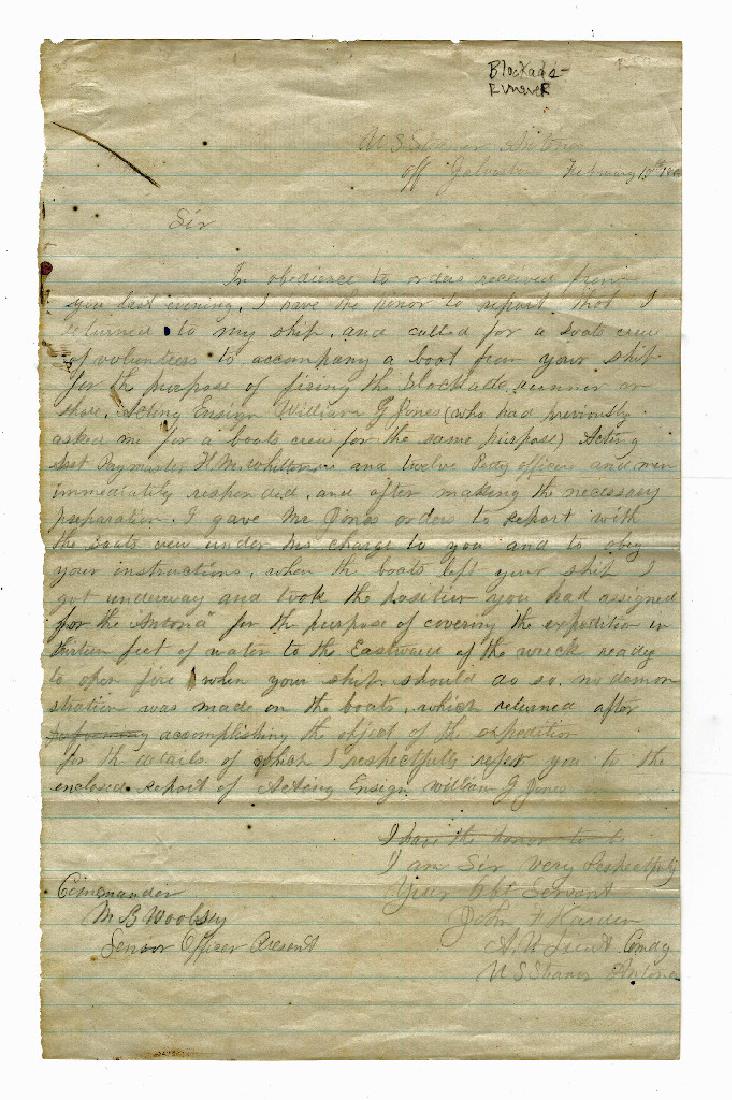 Blockade-
Runner
U S Steamer Antona
off Galveston February
Sir
In obedience to orders received from
you last evening, I have the honor to report that I
returned to my ship, and called for a boats crew
of volunteers to accompany a boat from your ship
for the purpose of firing the blockade runner on
shore, Acting Ensign William G Jones (who had previously
asked me for a boats crew for the same purpose) Acting
Asst Paymaster H M and twelve Petty officers and men
immediately responded, and after making the necessary
preparation. I gave Mr Jones orders to report with
the boats crew under his charge to you and to obey
your instructions, when the boats left your ship I
got underway and took the position you had assigned
for the "Antona" for the purpose of covering the expedition in
thirteen feet of water to the Eastward of the wreck ready
to open fire when your ship should do so, no demon
stration was made on the boats, which returned after
performing accomplishing the object of the expedition
for the details of which I respectfully refer you to the
enclosed report of Acting Ensign William G Jones
I have the honor to be
I am Sir very Respectfully
Your Obt Servant
Commander
M B Woolsey
Senior Officer Present
John F Harden
A. V. Lieut Comdg
U S Steamer Antona